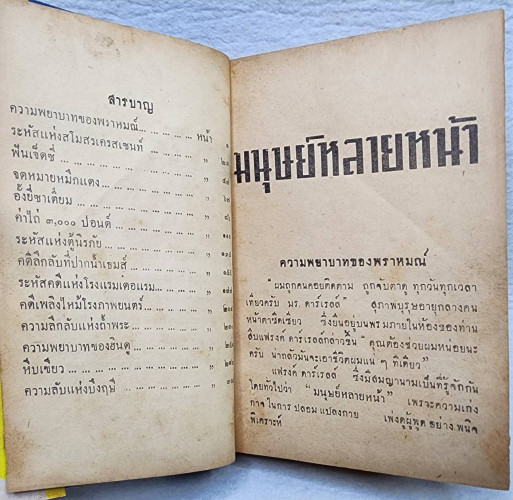 สารบาญ
ความพยาบาทของพราหมณ์... ... ... ... ... หน้า ๑
ระหัสแห่งสโมสรเครสเซนท์ ... ... ... ... "
ฟันเจ็ดซี่ ... ... ... ... ... ... "
จดหมายหมึกแดง ... ... ... ... ... "
อั้งยี่ซาเตี่ยม ... ... ... ... ... "
ค่าไถ่ ๓,๐๐๐ ปอนด์ ... ... ... ... "
ระหัสแห่งตู้นิรภัย ... ... ... ... "
คดีลึกลับที่ปากน้ำเธมส์ ... ... ... "
ระหัสคดีแห่งโรงแรมเดอแรม... ... ... "
คดีเพลิงไหม้โรงภาพยนตร์ ... ... ... "
ความลึกลับแห่งถ้ำพระ ... ... ... ... "
ความพยาบาทของฮินดู ... ... ... ... "
หีบเขียว ... ... ... ... ... "
ความลับแห่งบึงฤษี ... ... ... ... "
มนุษย์หลายหน้า
ความพยาบาทของพราหมณ์
"ผมถูกคนคอยติดตาม ถูกจับตาดู ทุกวันทุกเวลา
เทียวครับ มร. ดาร์เรลล์" สุภาพบุรุษอายุกลางคน
หน้าตาซีดเซียว ซึ่งยืนอยู่บนพรมภายในห้องของท่าน
สิมแฟรงค์ ดาร์เรลล์กล่าวขึ้น "คุณต้องช่วยผมหน่อยนะ
ครับ น่ากลัวมันจะเอาชีวิตผมแน่ ๆ ทีเดียว"
แฟรงค์ ดาร์เรลล์ ซึ่งมีสมญานามเป็นที่รู้จักกัน
โดยทั่วไปว่า "มนุษย์หลายหน้า" เพราะความเก่ง
กาจในการปลอมแปลงกาย เพ่งดูผู้พูดอย่างพินิจ
พิเคราะห์